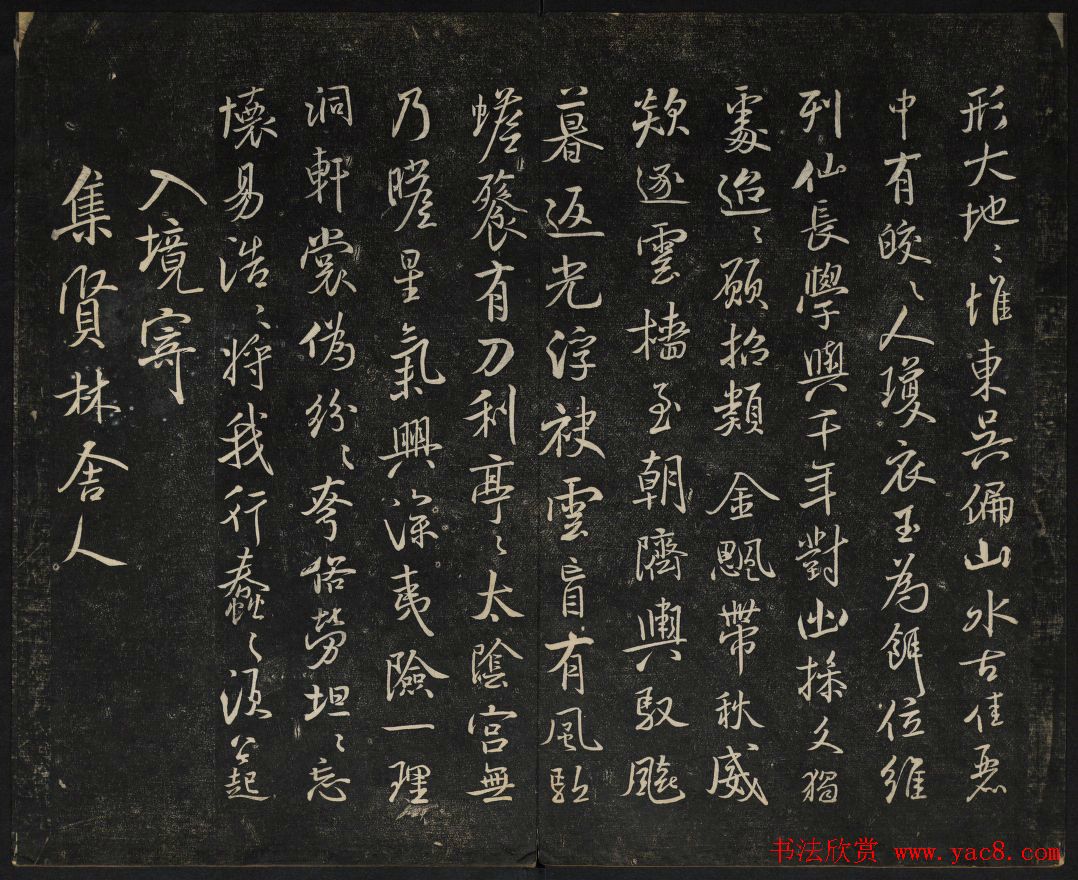 形大地〻惟東吳偏山水古佳麗
中有皎〻人瓊衣玉為餌位維
列仙長學與千年對幽操久獨
處迢〻願招類金飈帶秋威
欻逐雲檣至朝隮輿馭飈
暮返光浮袂雲肓有風馭
蟾餮有刀利亭〻太陰宮無
乃瞻星氣興深夷險一理
洞軒裳偽紛〻夸俗勞坦〻忘
懷易浩〻將我行蠢〻須公起
入境寄
集賢林舍人
书法欣赏 www.yac8.com